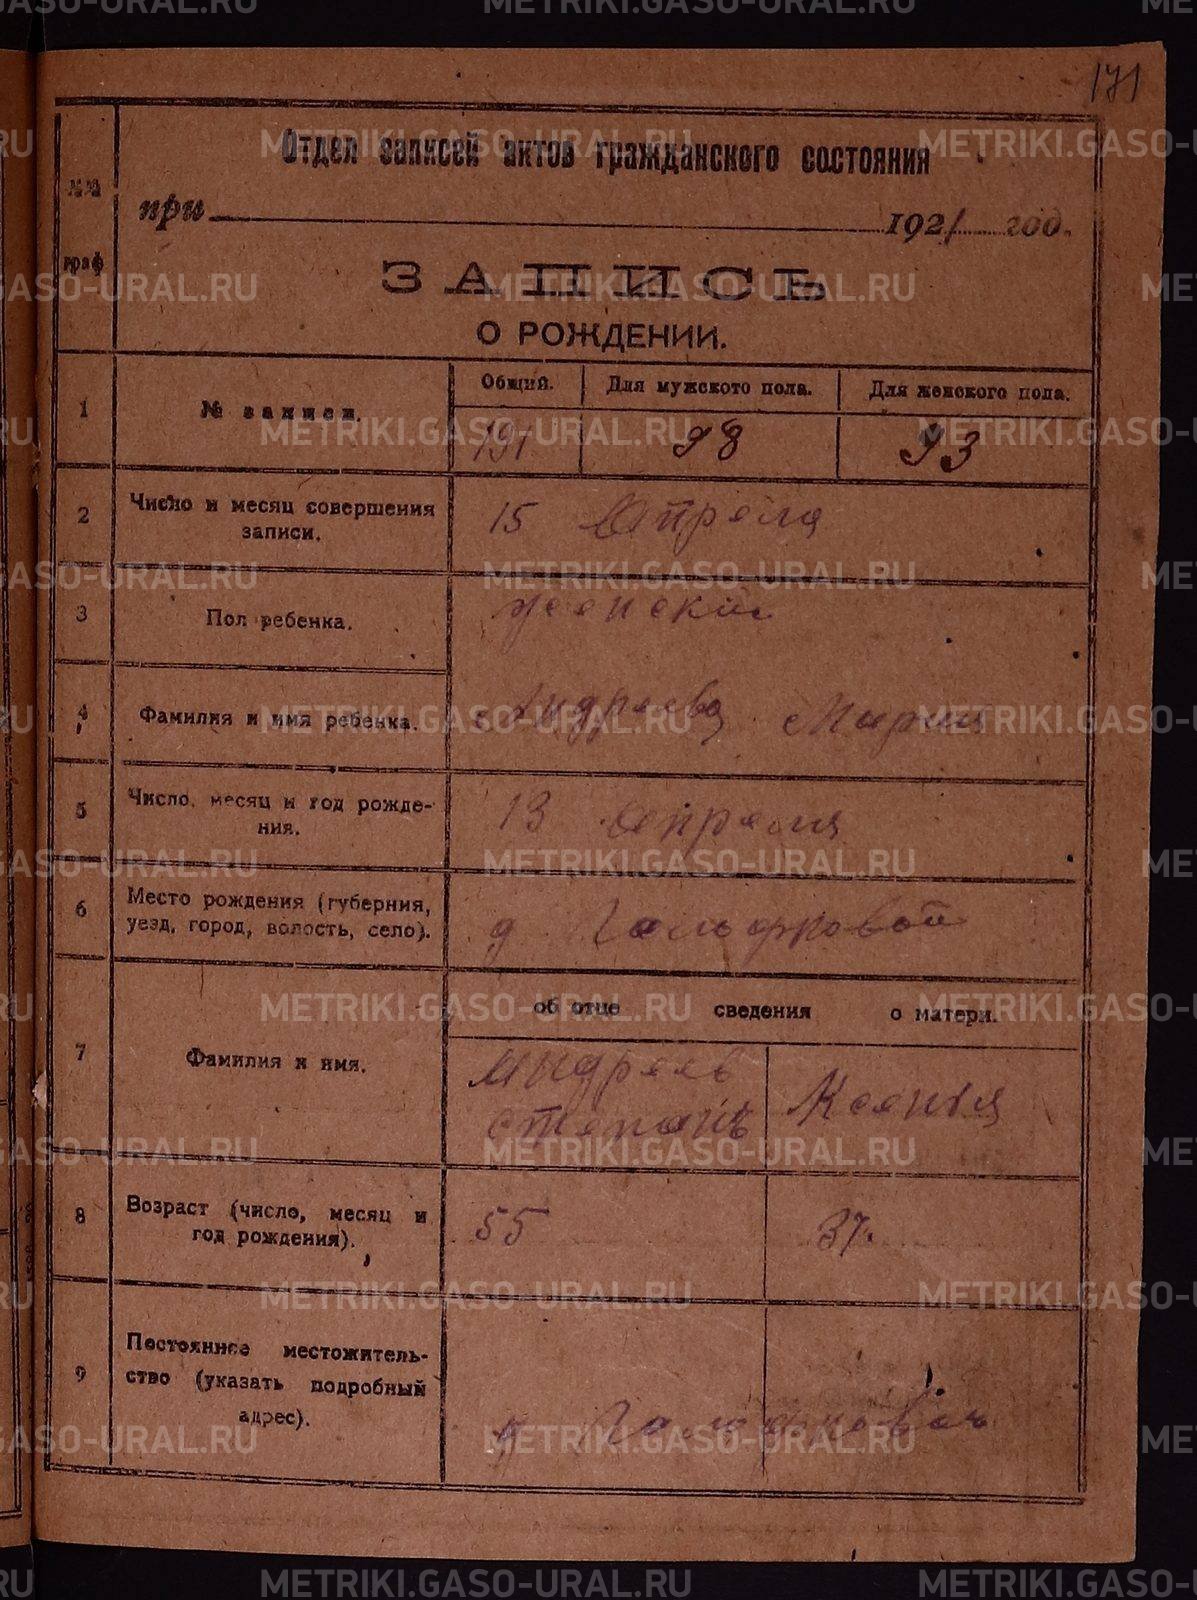 171
Отдел записей актов гражданского состояния
при 1921 год.
№№ граф
ЗАПИСЬ
О РОЖДЕНИИ.
1 № записи. Общий. Для мужского пола. Для женского пола.
191 98 93
2 Число и месяц совершения записи. 15 Апреля
3 Пол ребенка. женский
4 Фамилия и имя ребенка. Андреева Мария
5 Число, месяц и год рождения. 13 апреля
6 Место рождения (губерния, уезд, город, волость, село). д
об отце сведения о матери.
7 Фамилия и имя. Андреевъ Степанъ Ксенья
8 Возраст (число, месяц и год рождения). 55 37.
9 Постоянное местожительство (указать подробный адрес). д
METRIKI.GASO-URAL.RU